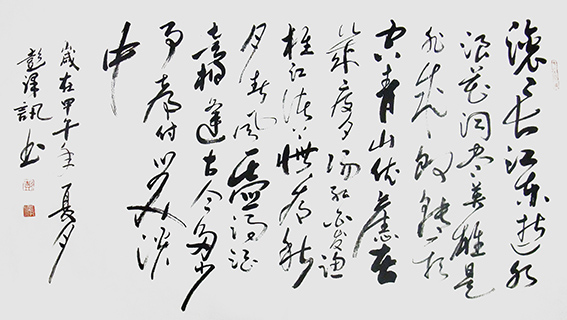 滚滚长江东逝水
浪花淘尽英雄是
非成败转头
空青山依旧在
几度夕阳红白发渔
樵江渚上惯看秋
月春风一壶浊酒
喜相逢古今多少
事都付笑谈
中
岁在甲午年夏月
彭泽讯书